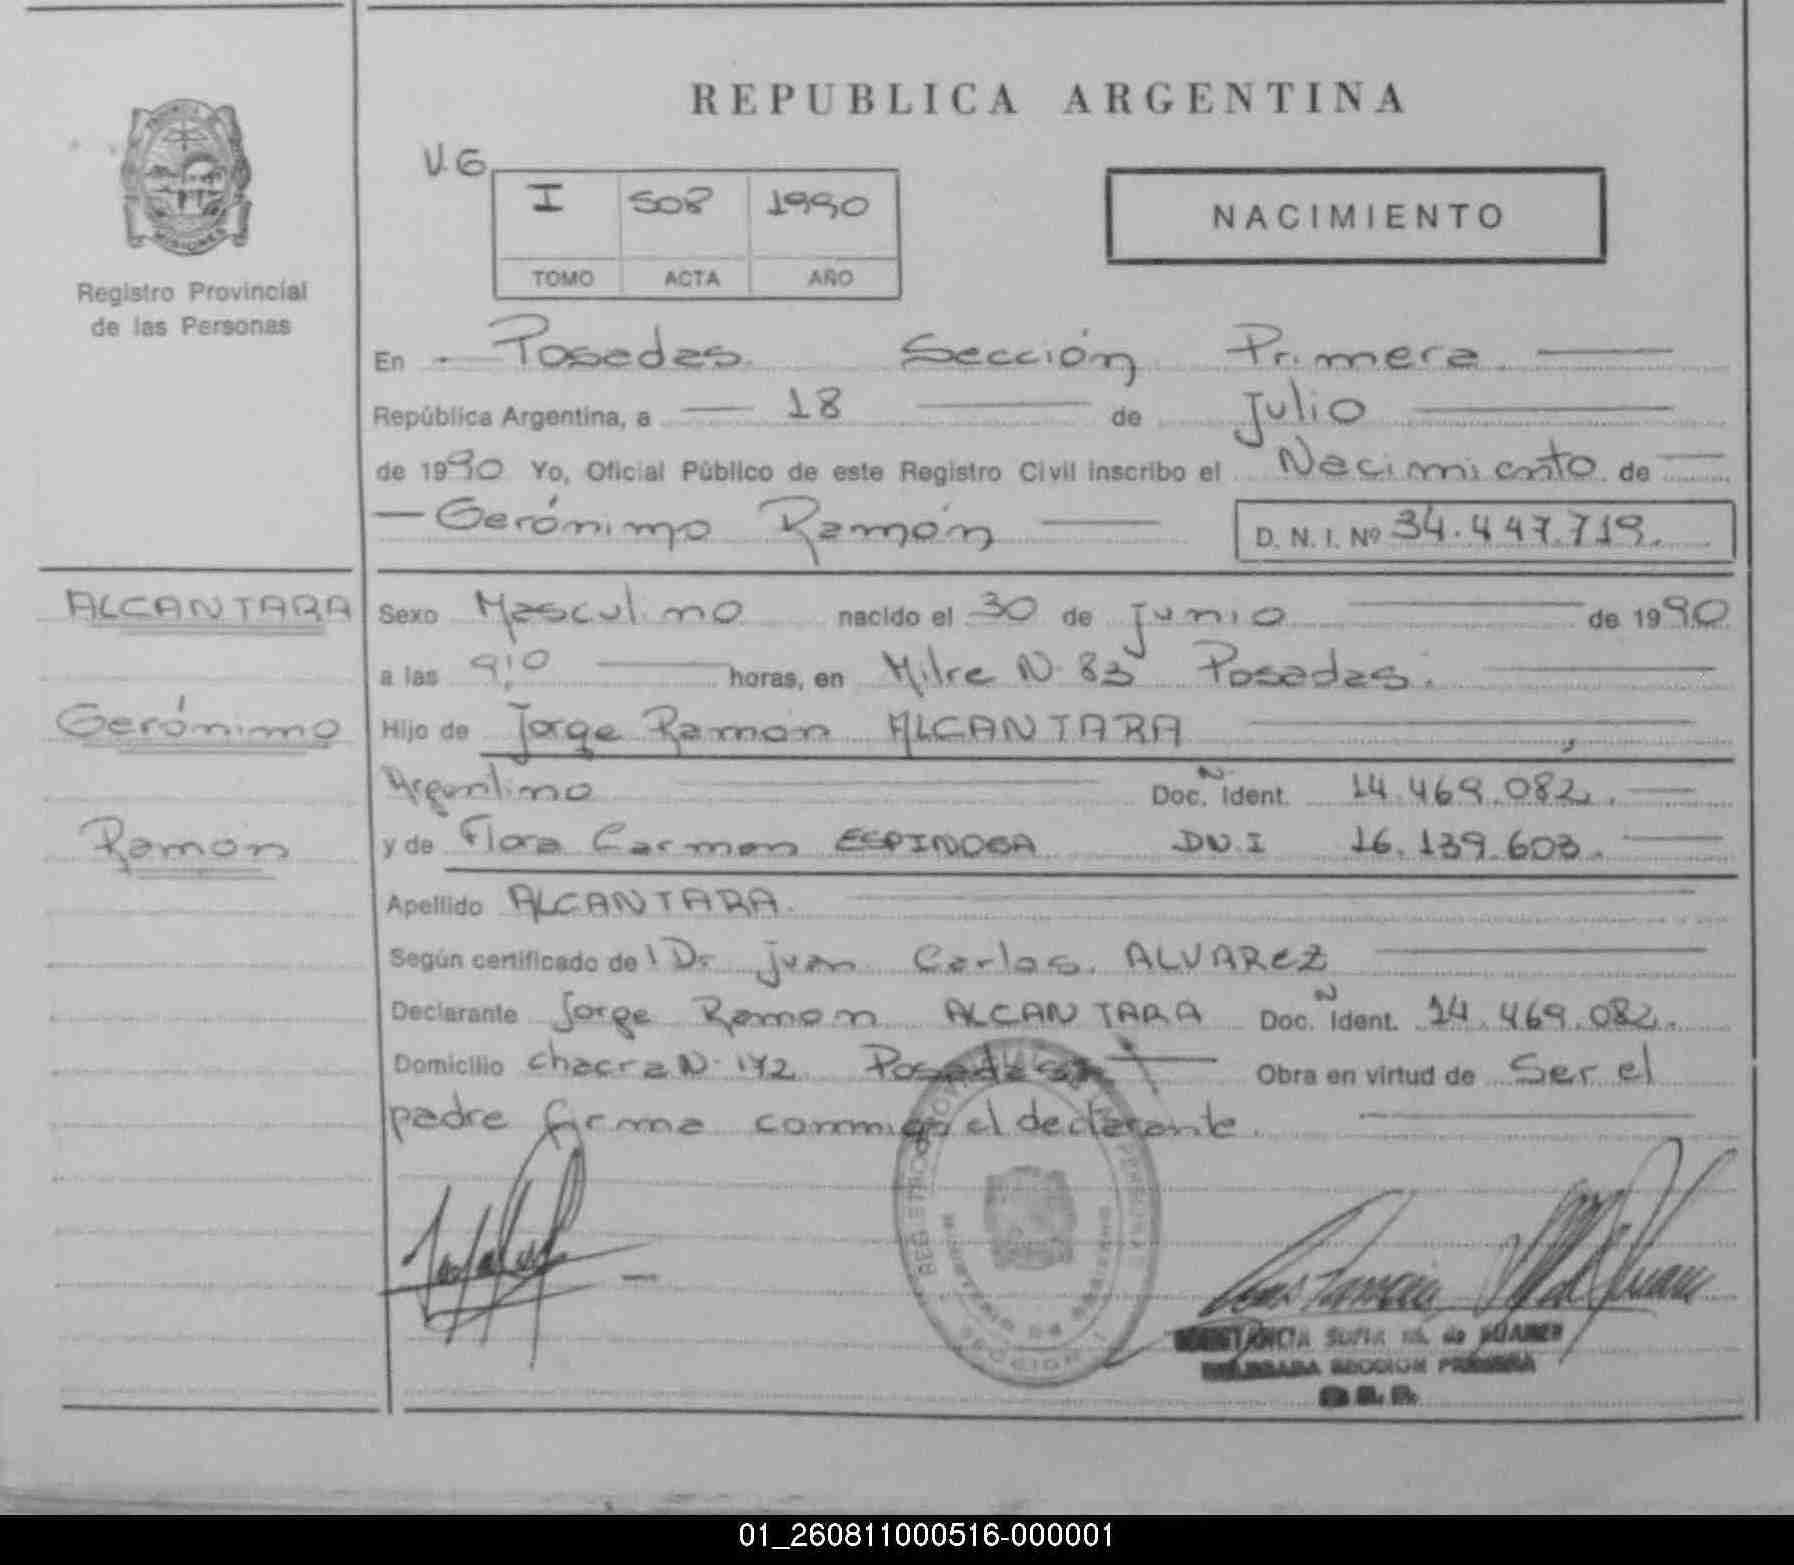 REPUBLICA ARGENTINA
V.G
I 508 1990
TOMO ACTA AÑO
NACIMIENTO
MISIONES
Registro Provincial
de las Personas
En Posadas Sección Primera
República Argentina, a 18 de Julio
de 1990 Yo, Oficial Público de este Registro Civil inscribo el Nacimiento de
Gerónimo Ramón D. N. I. Nº 34.447.719.
ALCANTARA
Gerónimo
Ramón
Sexo Masculino nacido el 30 de Junio de 1990
a las 9,0 horas, en Mitre N. 83 Posadas.
Hijo de Jorge Ramon ALCANTARA,
Argentino Doc. N Ident. 14.469.082.
y de Flora Carmen ESPINOSA D.N.I 16.139.603.
Apellido ALCANTARA.
Según certificado de l Dr Juan Carlos. ALVAREZ
Declarante Jorge Ramon ALCANTARA Doc. N Ident. 14.469.082.
Domicilio chacra N. 142 Posadas Obra en virtud de Ser el
padre firma conmigo el declarante.
SECCION 1
CONSTANCIA SOFIA M. de SUAREZ
DELEGADA SECCION PRIMERA
01_260811000516-000001